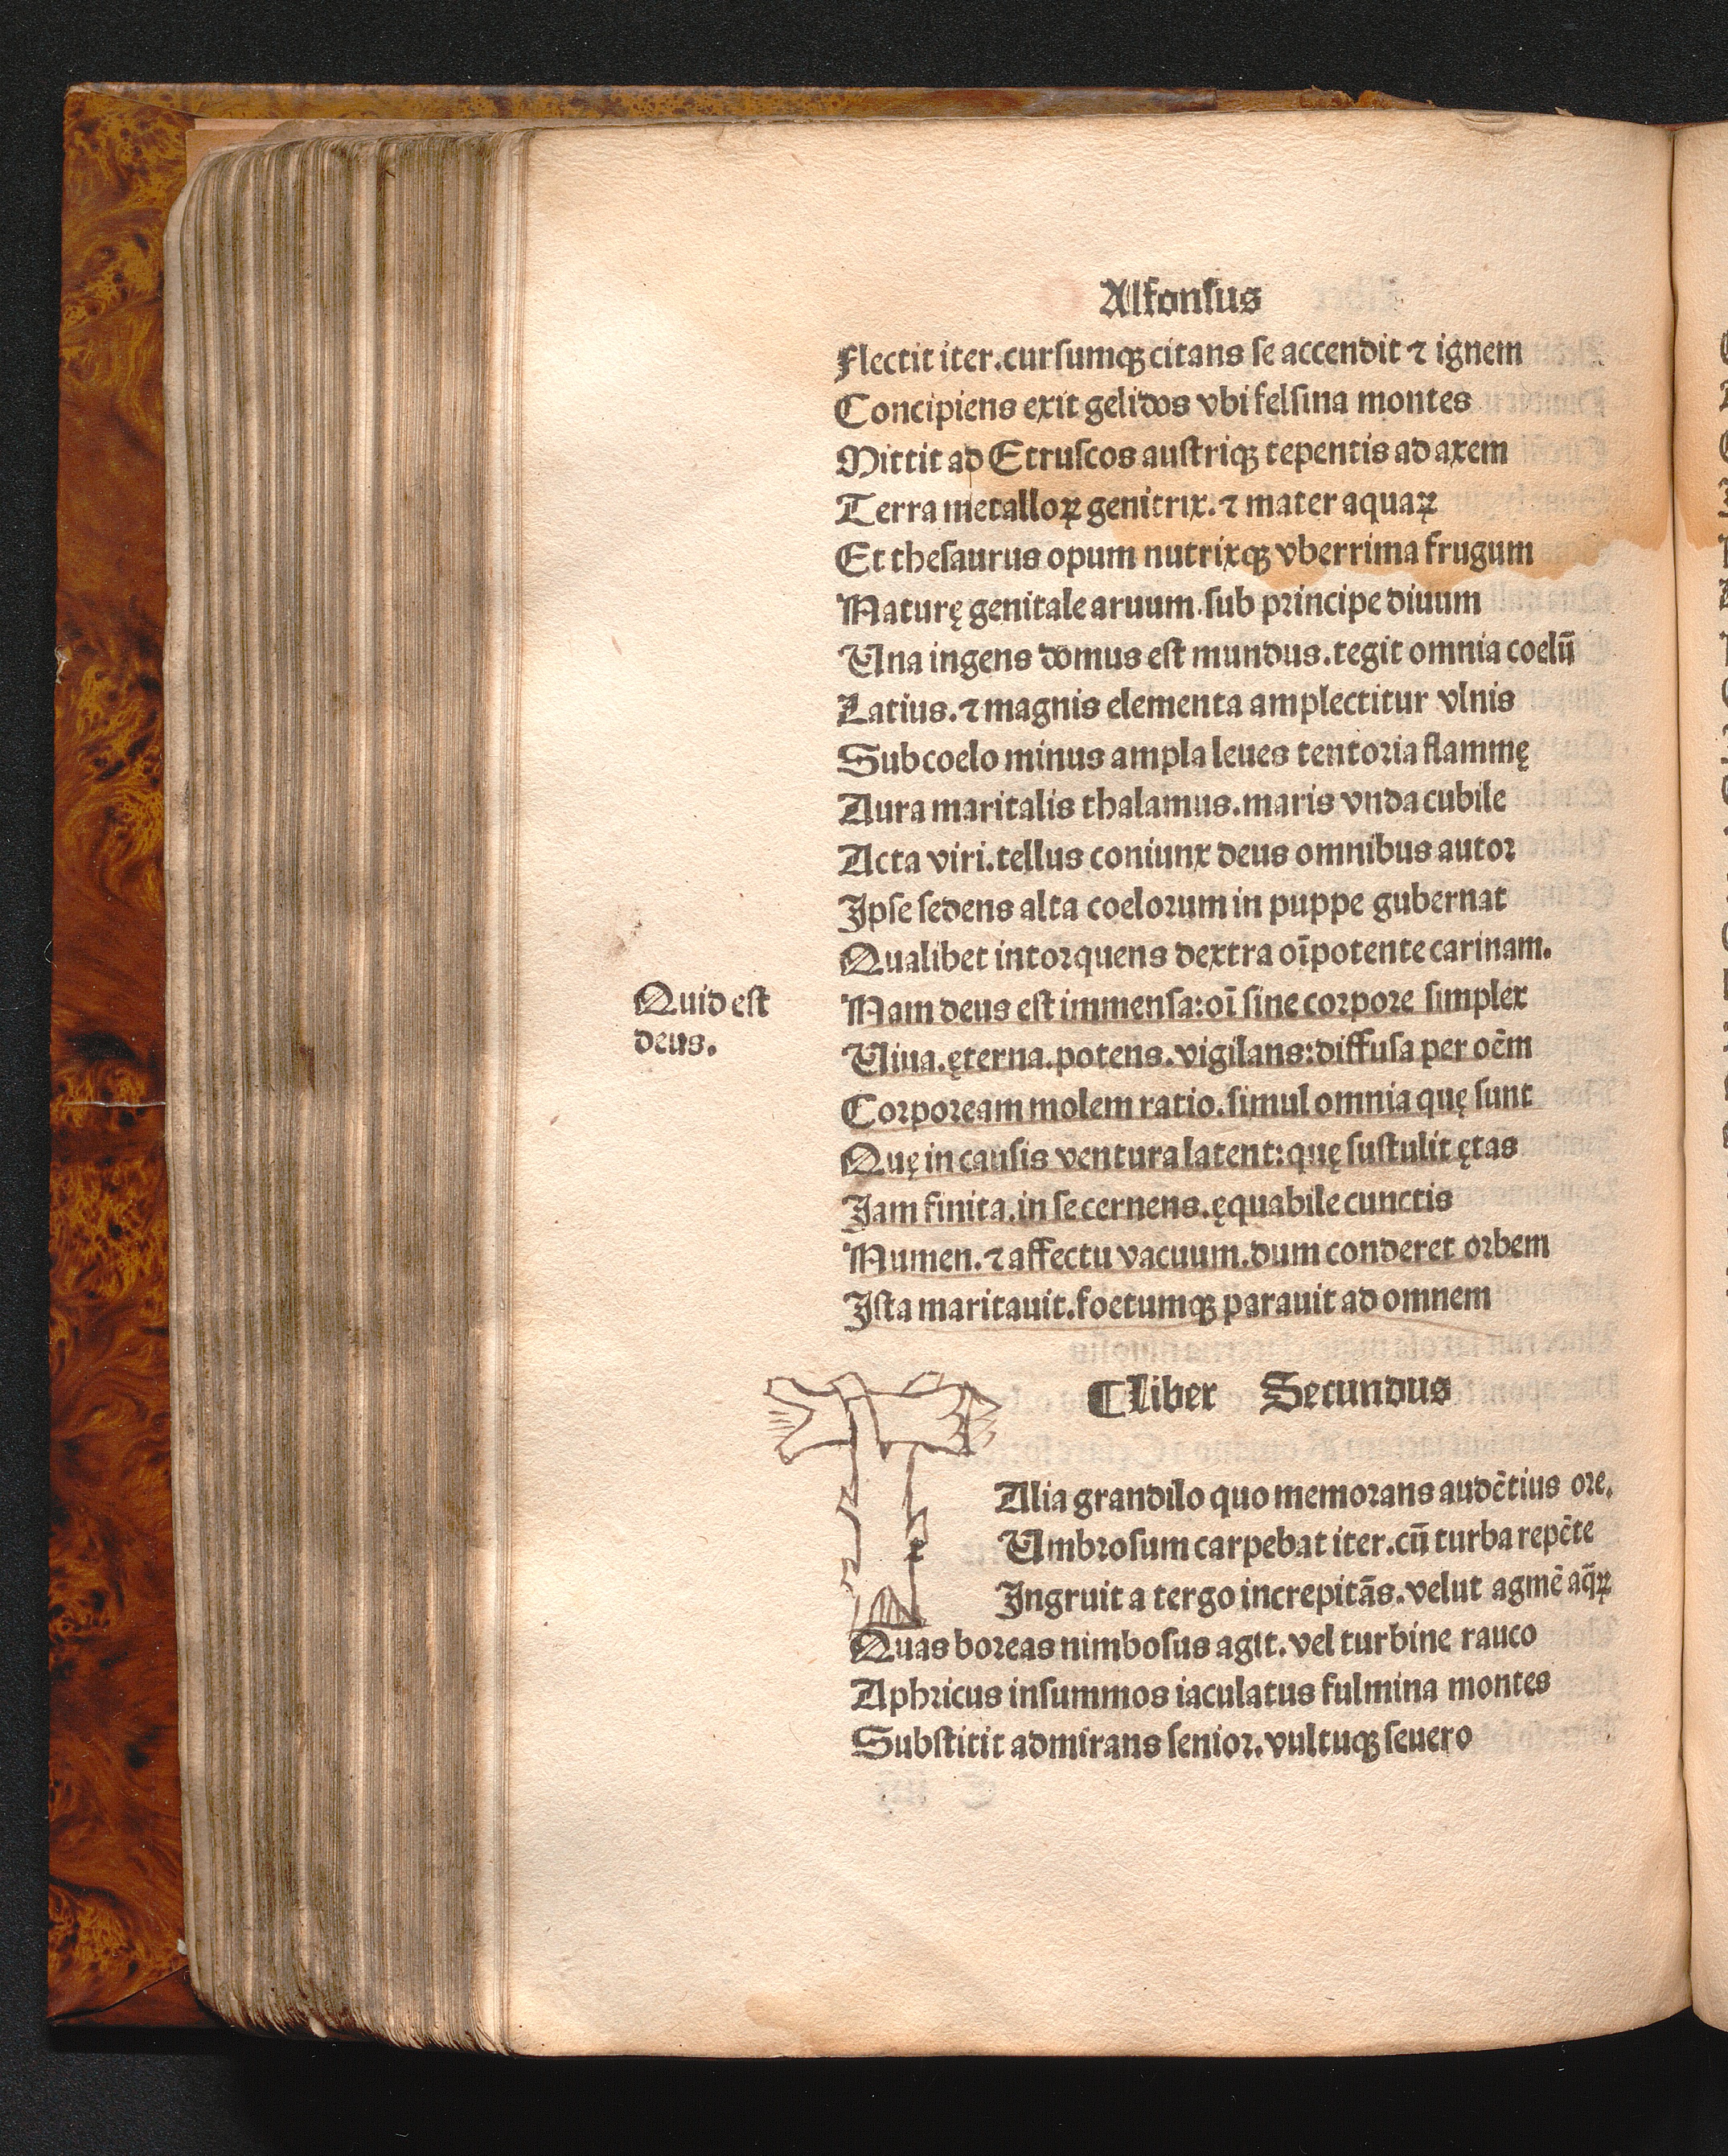 Alfonsus
Flectit iter.cursumqꝫ citans se accendit ⁊ ignem
Concipiens exit gelidos vbi felsina montes
Mittit ad Etruscos austriqꝫ tepentis ad axem
Terra metalloꝝ genitrix. ⁊ mater aquaꝝ
Et thesaurus opum nutrixqꝫ vberrima frugum
Naturę genitale aruum.sub principe diuum
Una ingens domus est mundus.tegit omnia coelū
Latius.⁊ magnis elementa amplectitur vlnis
Sub coelo minus ampla leues tentoria flammę
Aura maritalis thalamus.maris vnda cubile
Acta viri.tellus coniunx deus omnibus autor
Ipse sedens alta coelorum in puppe gubernat
Qualibet intorquens dextra oīpotente carinam.
Quid est
deus.
Nam deus est immensa:oī sine corpore simplex
Uiua.ęterna.potens.vigilans:diffusa per oēm
Corpoream molem ratio.simul omnia quę sunt
Quę in causis ventura latent:quę sustulit ętas
Iam finita.in se cernens.ęquabile cunctis
Numen.⁊ affectu vacuum.dum conderet orbem
Ista maritauit.foetumqꝫ parauit ad omnem
¶ Liber Secundus
T
Alia grandilo quo memorans audētius ore.
Umbrosum carpebat iter.cū turba repēte
Ingruit a tergo increpitās.velut agmē aq̄ꝝ
Quas boreas nimbosus agit.vel turbine rauco
Aphricus in summos iaculatus fulmina montes
Substitit admirans senior.vultuqꝫ seuero